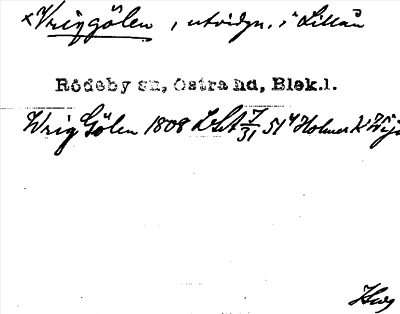 ×Vriggölen, utvidgn. i Lillån
Rödeby sn, Östra hd, Blek.l.
Wrig Gölen 1808 LSA 7/31 51 4 Holmer K Wija
Hws